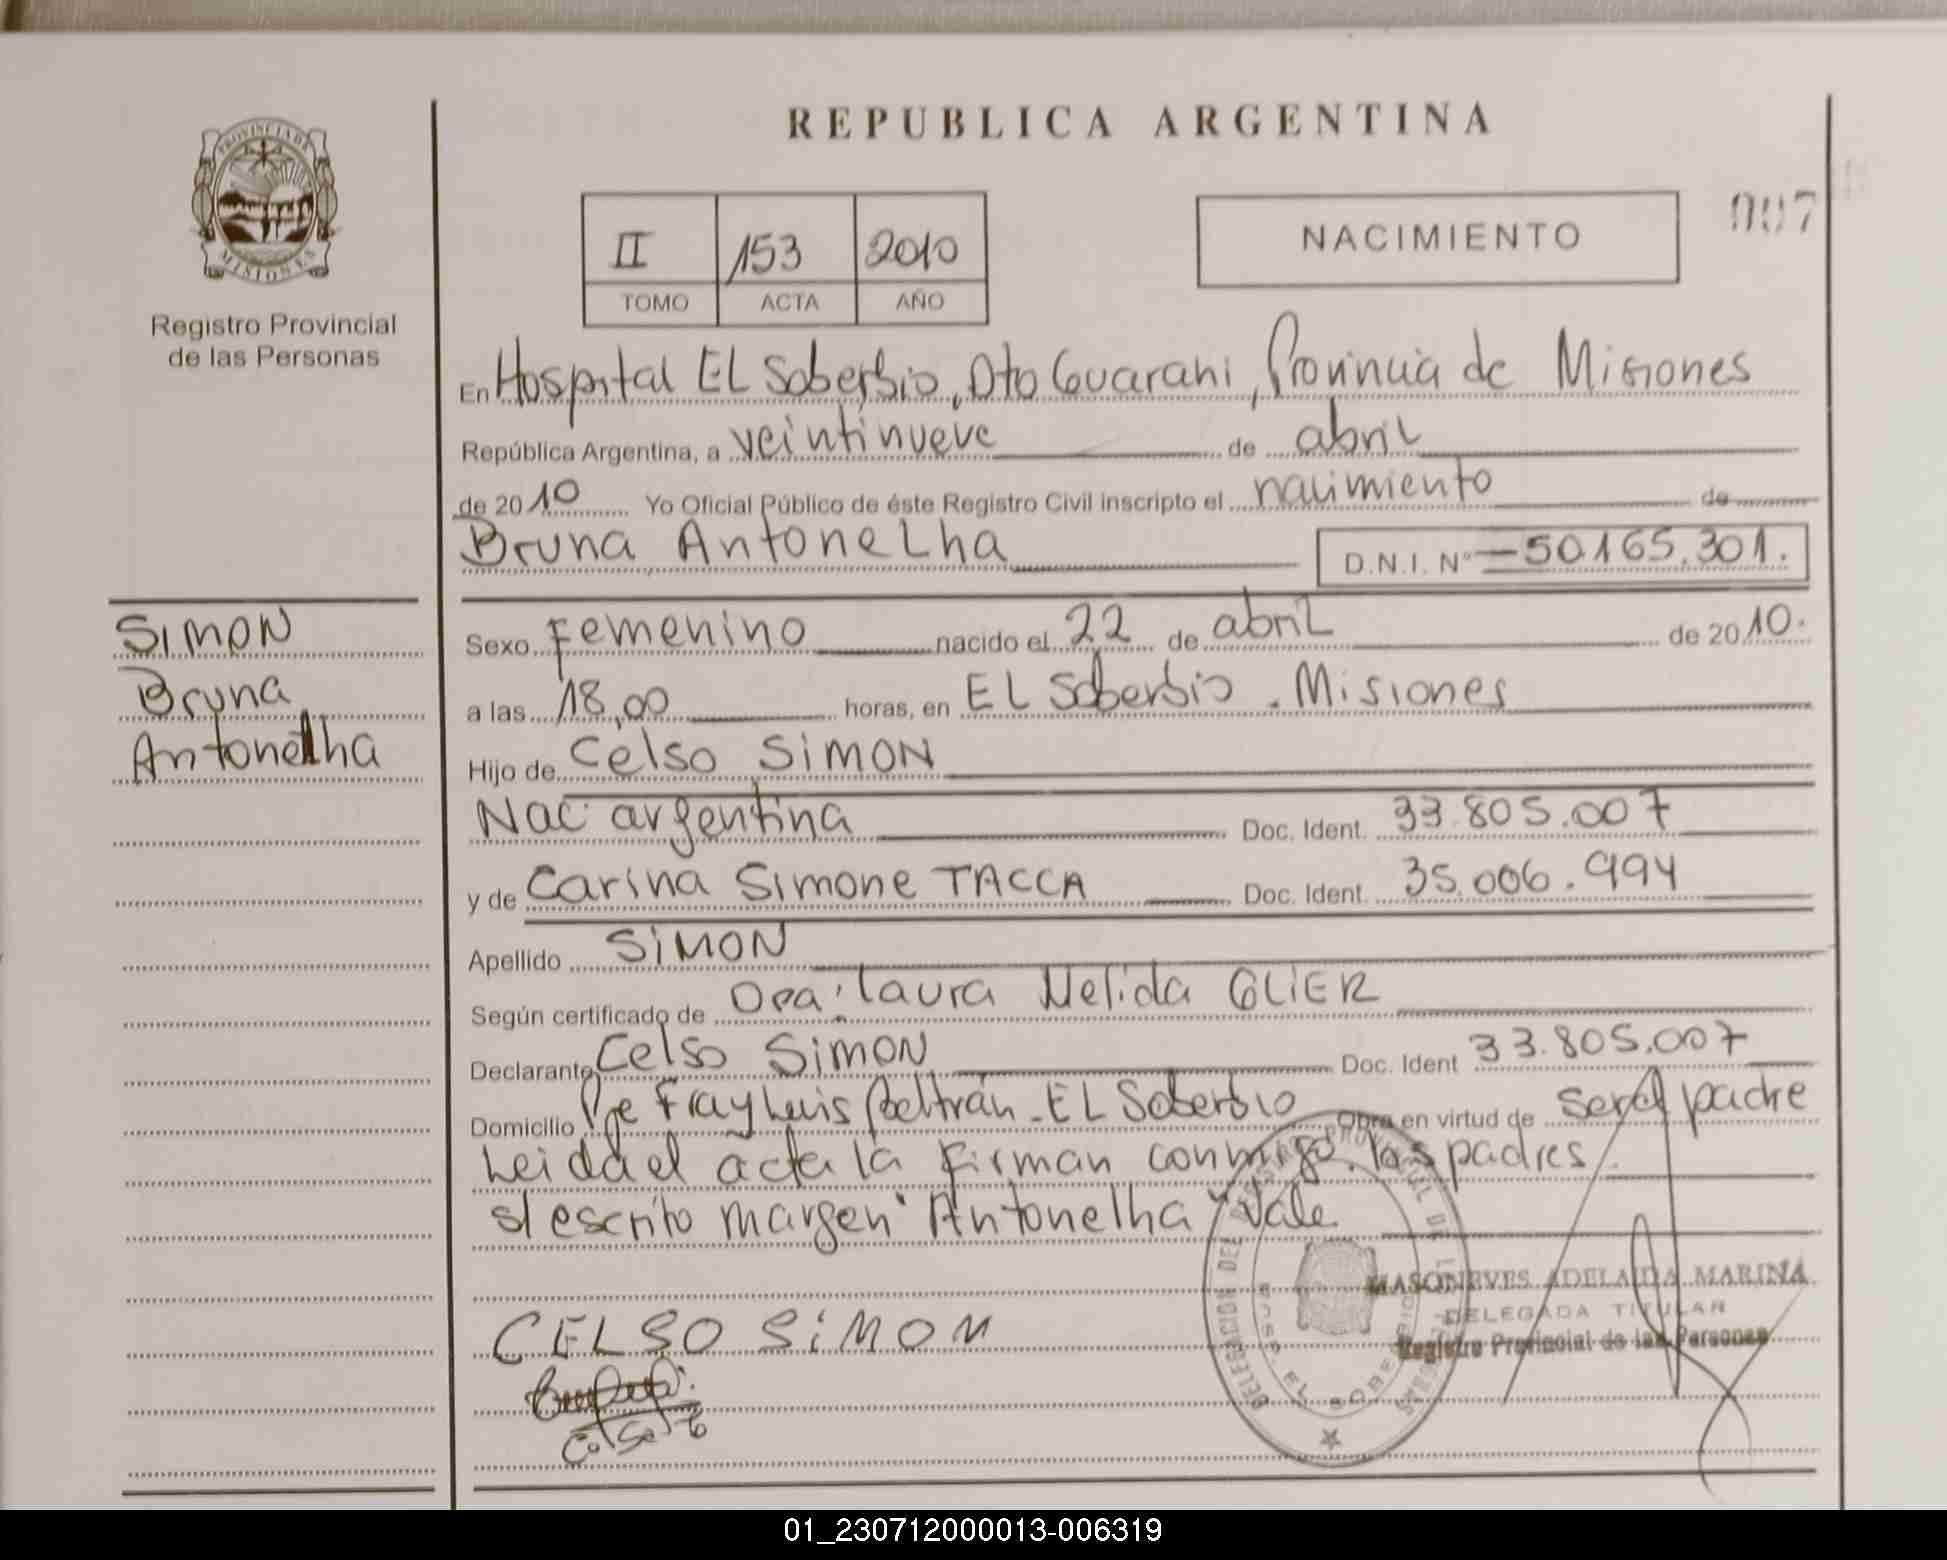 REPUBLICA ARGENTINA
PROVINCIA DE
MISIONES
Registro Provincial
de las Personas
II 153 2010
TOMO ACTA AÑO
NACIMIENTO
007
En Hospital EL Soberbio, Dto Guarani, Provincia de Misiones
República Argentina, a veintinueve de abril
de 2010 Yo Oficial Público de éste Registro Civil inscripto el nacimiento de
Bruna Antonelha D.N.I. Nº 50.165.301.
SIMON
Bruna
Antonelha
Sexo Femenino nacido el 22 de abril de 2010.
a las 18,00 horas, en EL Soberbio. Misiones
Hijo de Celso SIMON
Nac argentina Doc. Ident. 33.805.007
y de Carina Simone TACCA Doc. Ident. 35.006.994
Apellido SIMON
Según certificado de Dra: Laura Nelida GLIER
Declarante Celso SIMON Doc. Ident 33.805.007
Domicilio Pje Fray Luis Beltrán - EL Soberbio Obra en virtud de ser el padre
Leida el acta la firman conmigo los padres
s/ escrito margen "Antonelha" Vale
CELSO SIMON
MASONEVES ADELAIDA MARINA
DELEGADA TITULAR
Registro Provincial de las Personas
01_230712000013-006319